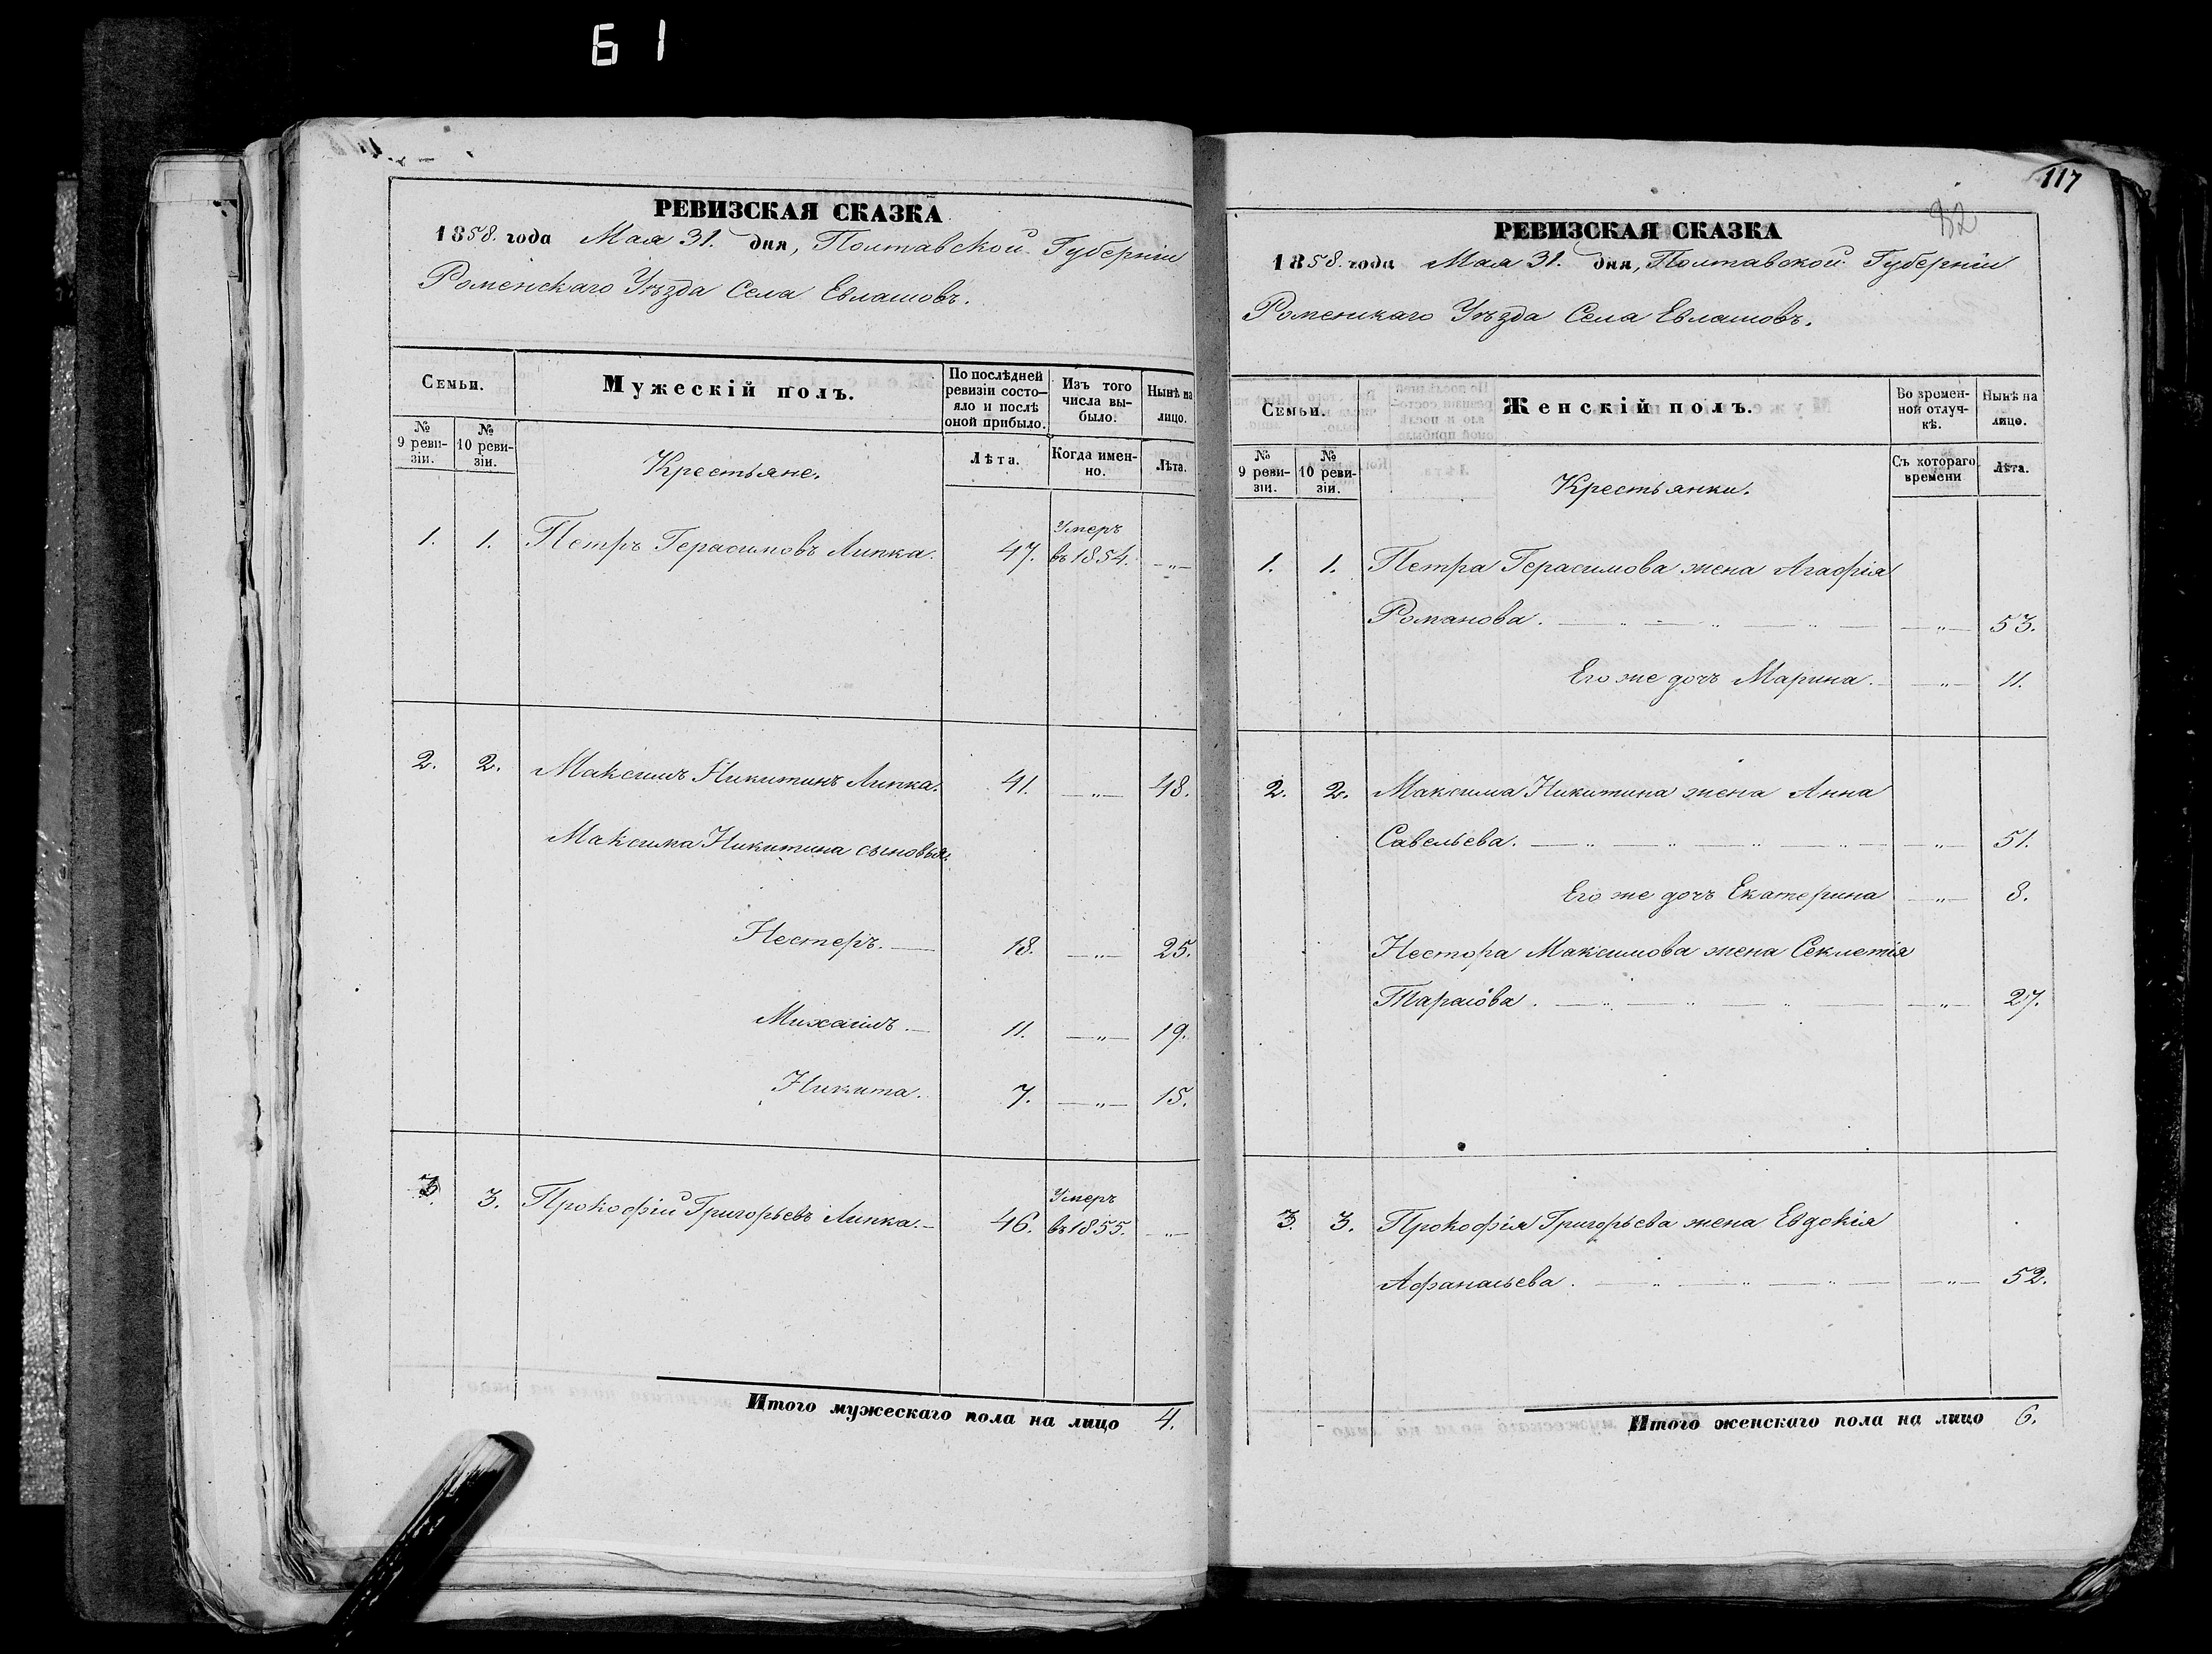 61
РЕВИЗСКАЯ СКАЗКА
1858. года Мая 31. дня, Полтавской Губерніи
Роменскаго Уѣзда Села Евлашовъ.
Семьи.
Мужескій полъ.
По послѣдней ревизіи состояло и послѣ оной прибыло.
Изъ того числа выбыло.
Нынѣ на лицо.
№ 9 ревизіи.
№ 10 ревизіи.
Крестьяне.
Лѣта.
Когда именно.
Лѣта.
1. 1. Петръ Герасимовъ Липка. 47. Умеръ въ 1854. —„—
2. 2. Максимъ Никитинъ Липка. 41. —„— 48.
Максима Никитина сыновья:
Нестеръ. — 18. —„— 25.
Михаилъ. — 11. —„— 19.
Никита. 7. —„— 15.
3. 3. Прокофій Григорьевъ Липка. — 46. Умеръ въ 1855. —„—
Итого мужескаго пола на лицо 4.
117
РЕВИЗСКАЯ СКАЗКА
1858. года Мая 31. дня, Полтавской Губерніи
Роменскаго Уѣзда Села Евлашовъ.
Семьи.
Женскій полъ.
Во временной отлучкѣ.
Нынѣ на лицо.
№ 9 ревизіи.
№ 10 ревизіи.
Крестьянки.
Съ котораго времени
Лѣта.
1. 1. Петра Герасимова жена Агафія
Романова. —„— 53.
Его же дочь Марина. —„— 11.
2. 2. Максима Никитина жена Анна
Савельева. —„— 51.
Его же дочь Екатерина —„— 8.
Нестора Максимова жена Секлетія
Тарасова. —„— 27.
3. 3. Прокофія Григорьева жена Евдокія
Афанасьева. —„— 52.
Итого женскаго пола на лицо 6.